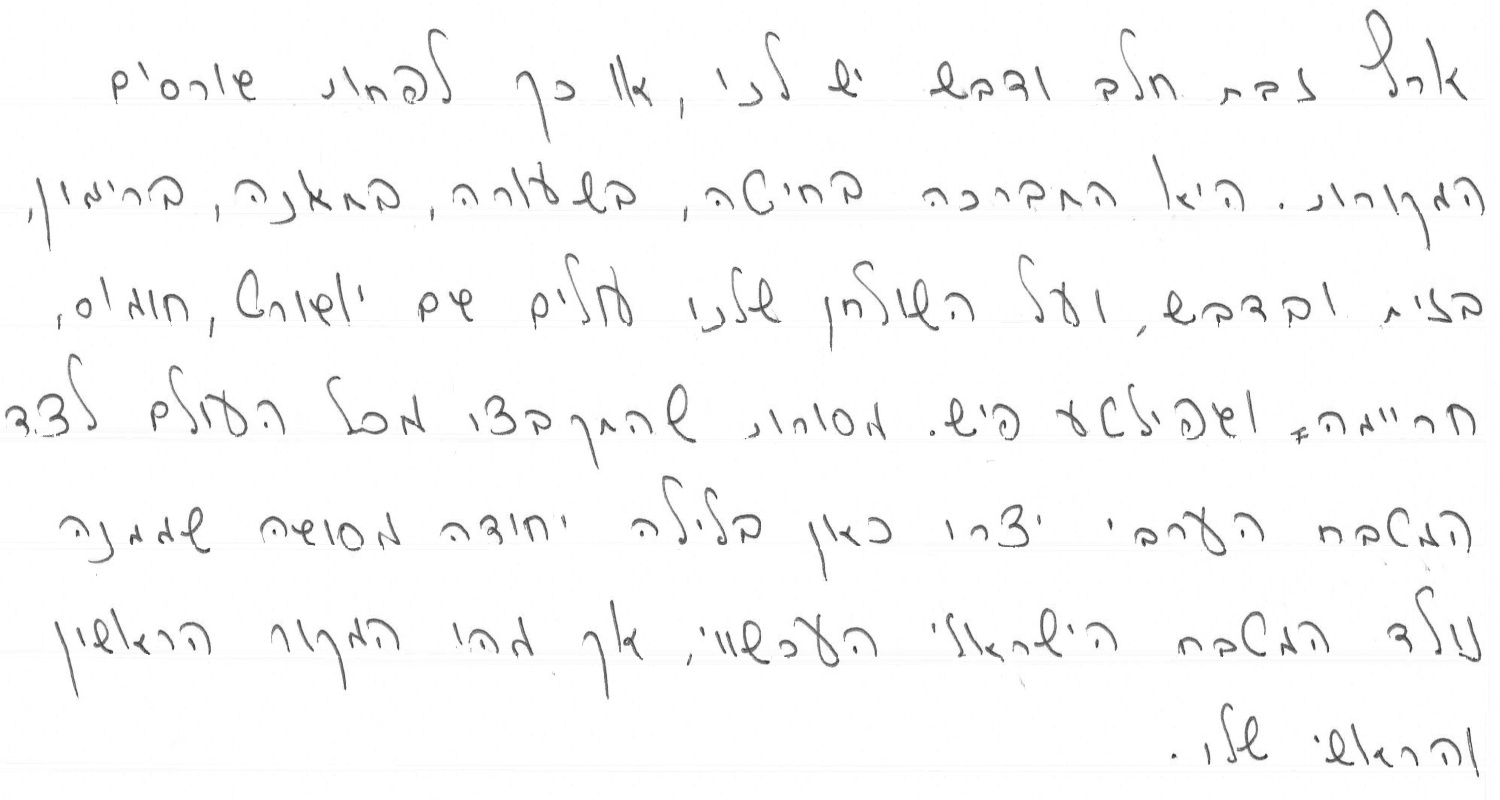 ארץ זבת חלב ודבש יש לנו, או כך לפחות גורסים
המקורות. היא התברכה בחיטה, בשעורה, בתאנה, ברימון,
בזית ובדבש, ועל השולחן שלנו עולים גם יוגורט, חומוס,
חריימה, וגפילטע פיש. מסורות שהתקבצו מכל העולם לצד
המטבח הערבי יצרו כאן בלילה יחודה מסוגה שממנה
נולד המטבח הישראלי העכשווי, אך מהו המקור הראשון
והראשי שלו.